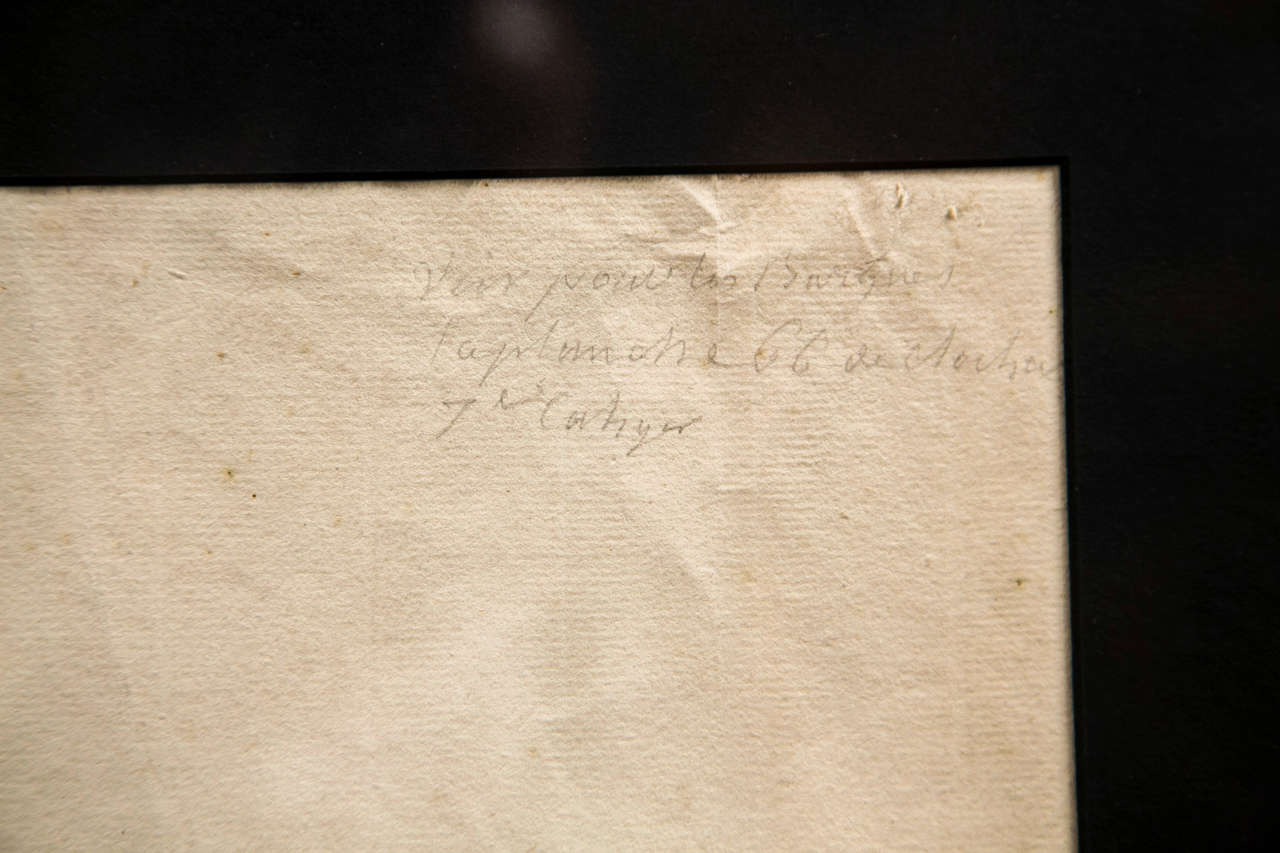 Voir pour les Barques
la planche 66 de
7me Cahyer